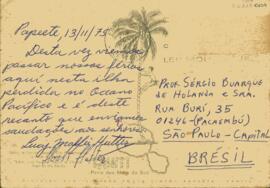 Papeete, 13/11/75
Desta vez viemos
passar nossas férias
aqui nesta ilha
perdida no Oceano
Pacífico e é deste
recanto que enviamos
saudações aos senhores.
PROF. SÉRGIO BUARQUE
DE HOLANDA E SRA.
RUA BURI, 35
01246-(PACAEMBÚ)
SÃO-PAULO-CAPITAL
BRÉSIL